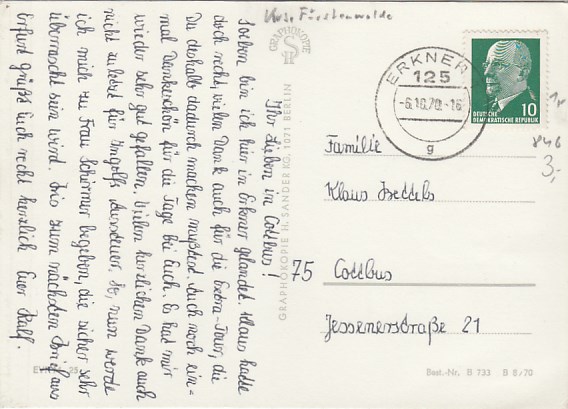 Kreis Fürstenwalde
GRAPHOKOPIE
HS
ERKNER
125
-6.10.70.-16
g
10
DEUTSCHE
DEMOKRATISCHE REPUBLIK
846
3,-
Ihr Lieben in Cottbus!
Soeben bin ich hier in Erkner gelandet. Klaus hatte
doch recht, vielen Dank auch für die Extra-Tour, die
Du deshalb dadurch machen mußtest. Auch noch ein=
mal Dankeschön für die Tage bei Euch. Es hat mir
wieder sehr gut gefallen. Vielen herzlichen Dank auch
nicht zuletzt für Ingolfs Aussteuer. So, nun werde
ich mich zu Frau Schirmer begeben, die sicher sehr
überrascht sein wird. Bis zum nächsten Brief aus
Erfurt grüßt Euch recht herzlich Euer Ralf.
GRAPHOKOPIE H. SANDER KG. 1071 BERLIN
Familie
Klaus
75 Cottbus
Jessenerstraße 21
Best.-Nr. B 733 B 8/70